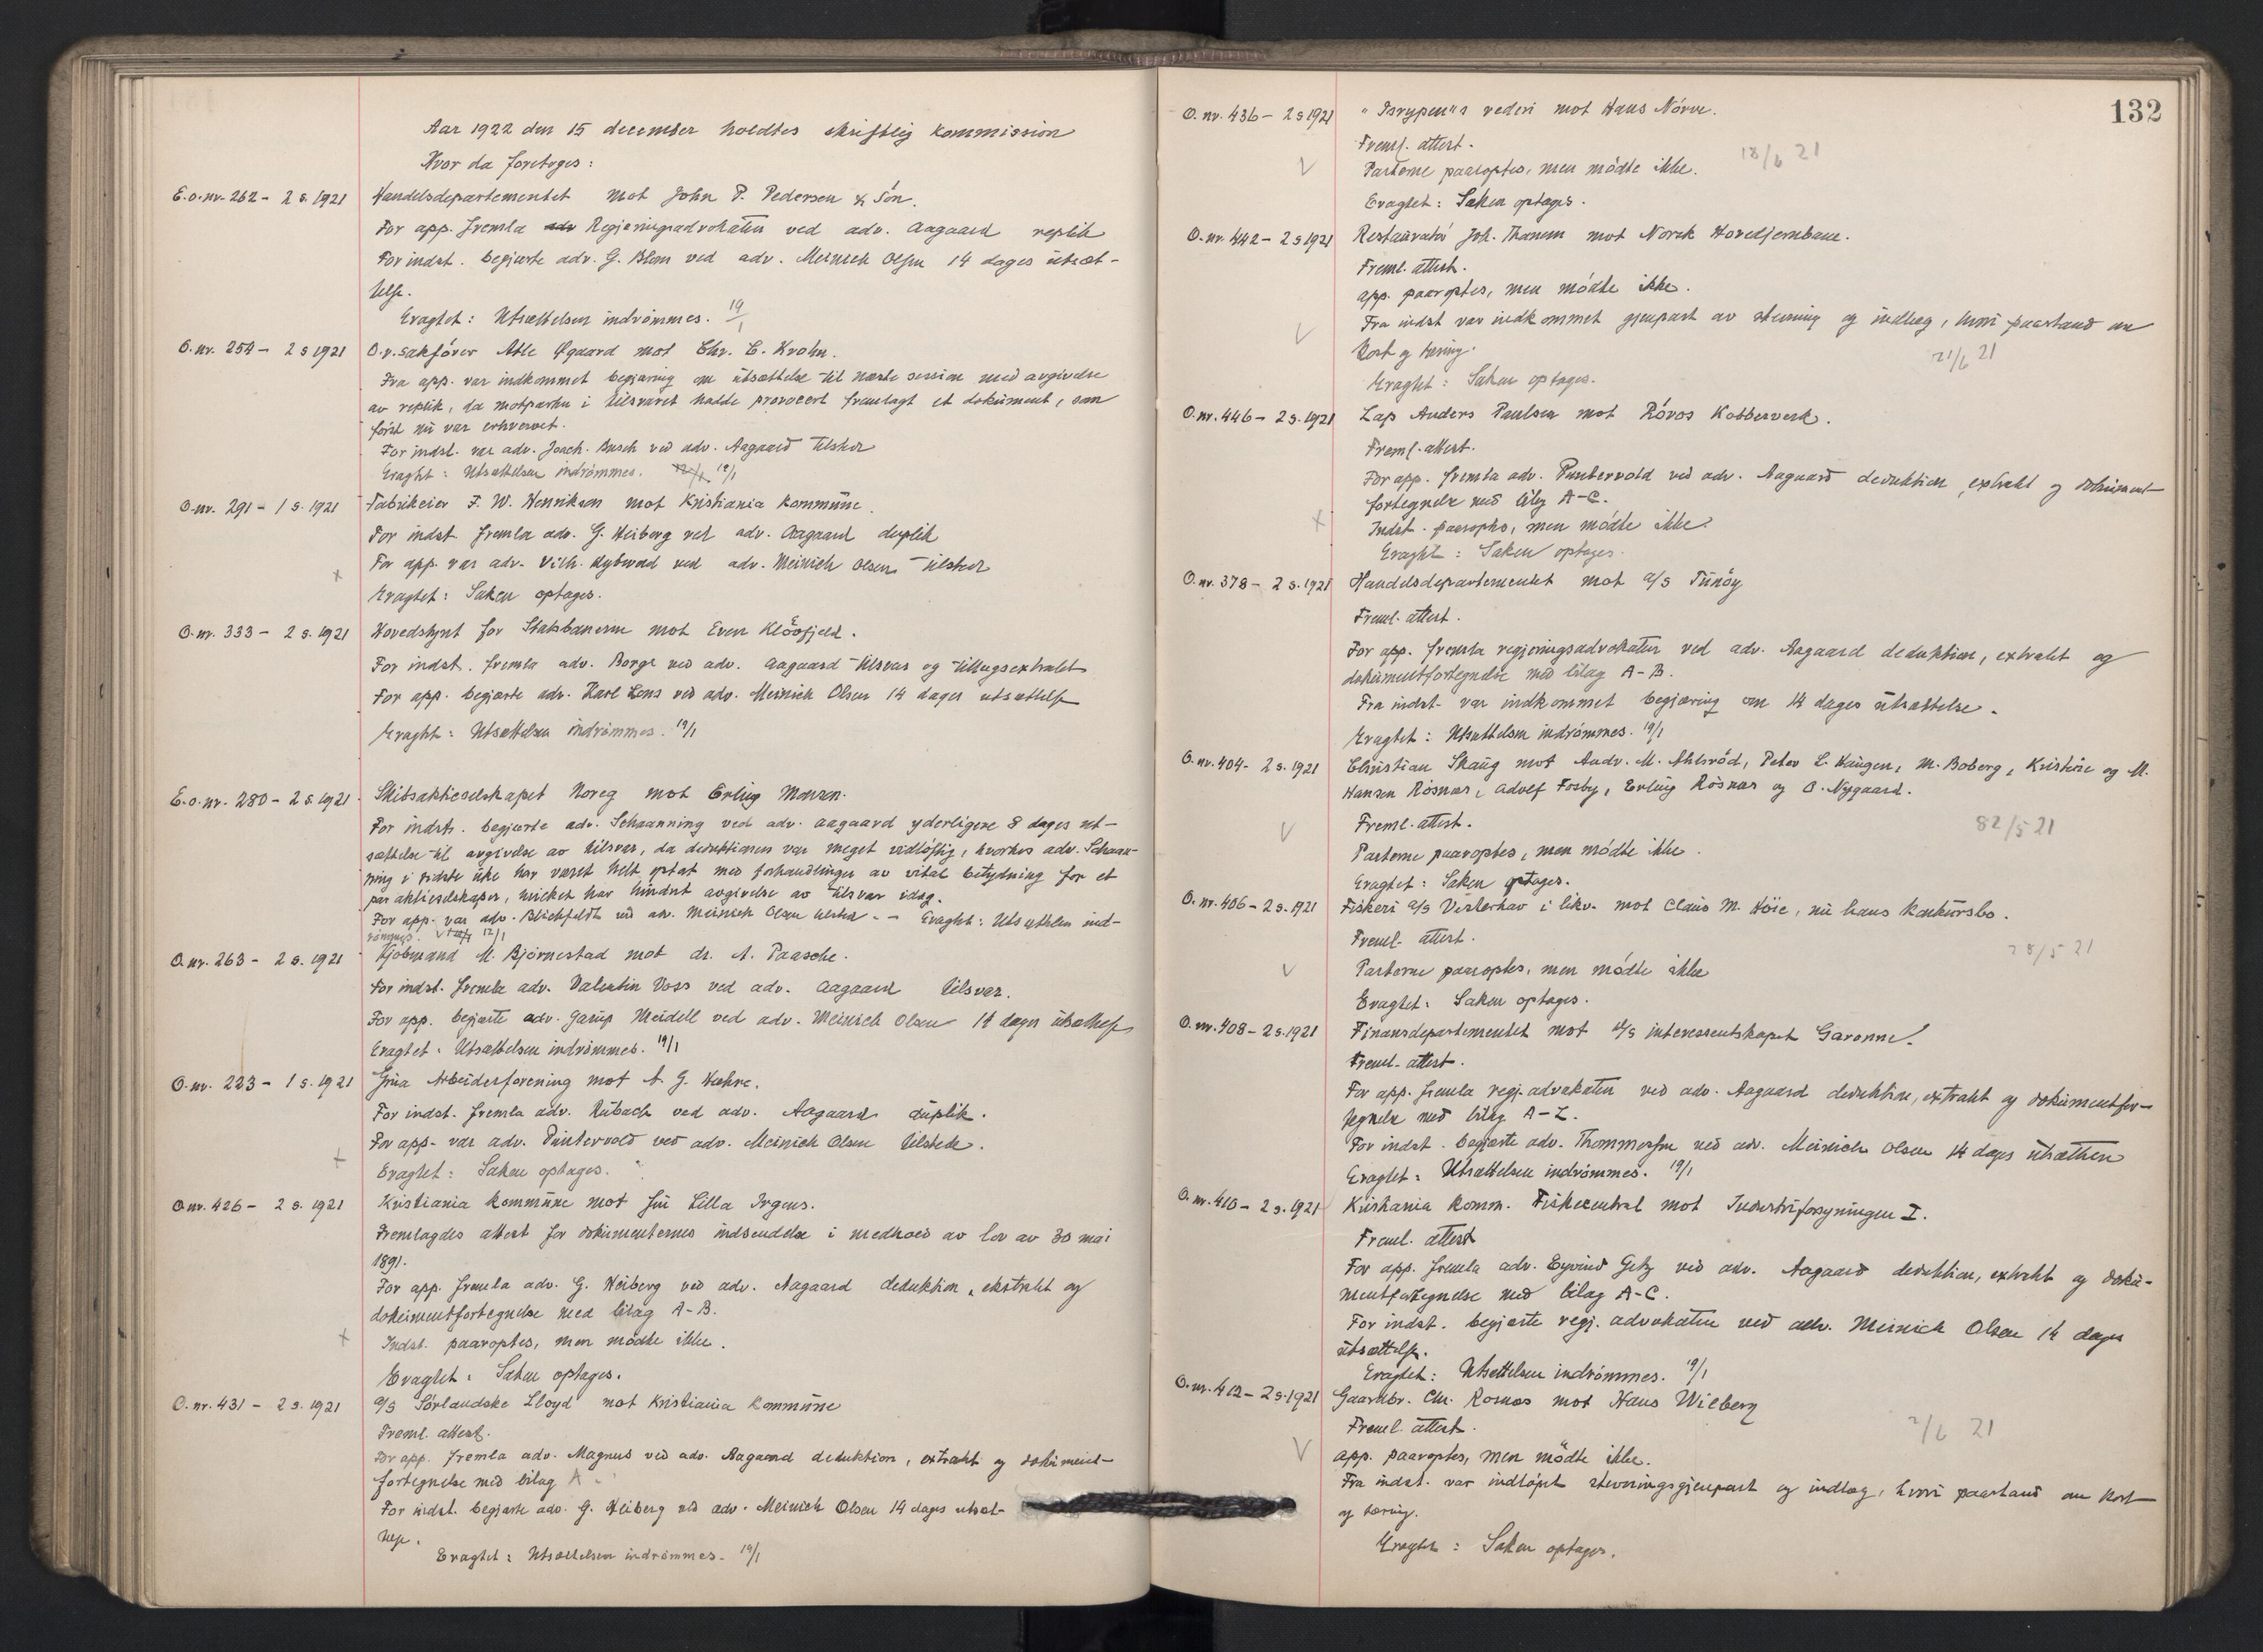 Aar 1922 den 15 december holdtes skriftlig kommission
Hvor da foretoges:
E.o.nr. 262 - 2 s. 1921 Handelsdepartementet mot John P. Pedersen & Søn.
For app. fremla adv Regjeringsadvokaten ved adv. Aagaard replik
For indst. begjærte adv. G. Blom ved adv. Meinich Olsen 14 dages utsæt-
telse.
Eragtet: Utsættelsen indrømmes. 19/1
O.nr. 254 - 2 s 1921 O.r.sakfører Atle Øgaard mot Chr. C. Krohn.
Fra app. var indkommet begjæring om utsættelse til næste session med avgivelse
av replik, da motparten i tilsvaret hadde provocert fremlagt et dokument, som
først nu var erhvervet.
For indst. var adv. Joach. Busch ved adv. Aagaard tilstede
Eragtet: Utsættelsen indrømmes. 19/1
O.nr. 291 - 1 s. 1921 Fabrikeier F. W. Henriksen mot Kristiania kommune.
For indst. fremla adv. G. Heiberg ved adv. Aagaard duplik
For app. var adv. Vilh. Dybwad ved adv. Meinich Olsen tilstede
x
Eragtet: Saken optages.
O.nr. 333 - 2 s. 1921 Hovedstyret for Statsbanerne mot Even Kløofjeld.
For indst. fremla adv. Borge ved adv. Aagaard tilsvar og tillægsextrakt
For app. begjærte adv. Karl Lous ved adv. Meinich Olsen 14 dages utsættelse
Eragtet: Utsættelsen indrømmes. 19/1
E.o.nr. 280 - 2 s. 1921 Skibsaktieselskapet Noreg mot Erling Monsen.
For indst. begjærte adv. Schaanning ved adv. Aagaard yderligere 8 dages ut-
sættelse til avgivelse av tilsvar, da deduktionen var meget vidløftig, hvorhos adv. Schaan-
ning i sidste uke har været helt optat med forhandlinger av vital betydning for et
par aktieselskaper, hvilket har hindret avgivelse av tilsvar idag.
For app. var adv. Blichfeldt ved adv. Meinich Olsen tilstede. - Eragtet: Utsættelsen ind-
rømmes. 12/1
O.nr. 263 - 2 s. 1921 Kjøbmand M. Bjørnestad mot dr. A. Paasche.
For indst. fremla adv. Valentin Voss ved adv. Aagaard tilsvar.
For app. begjærte adv. Garup Meidell ved adv. Meinich Olsen 14 dages utsættelse
Eragtet: Utsættelsen indrømmes. 19/1
O.nr. 223 - 1 s. 1921 Grua Arbeiderforening mot A. G. Hæhre.
For indst. fremla adv. Rubach ved adv. Aagaard duplik.
For app. var adv. Puntervold ved adv. Meinich Olsen tilstede.
x
Eragtet: Saken optages.
O.nr. 426 - 2 s. 1921 Kristiania kommune mot fru Lilla Irgens.
Fremlagdes attest for dokumenternes indsendelse i medhold av lov av 30 mai
1891.
For app. fremla adv. G. Heiberg ved adv. Aagaard deduktion, ekstrakt og
dokumentfortegnelse med bilag A-B.
x
Indst. paaroptes, men mødte ikke.
Eragtet: Saken optages.
O.nr. 431 - 2 s. 1921 A/S Sørlandske Lloyd mot Kristiania kommune
Freml. attest.
For app. fremla adv. Magnus ved adv. Aagaard deduktion, extrakt og dokument-
fortegnelse med bilag A -
For indst. begjærte adv. G. Heiberg ved adv. Meinich Olsen 14 dages utsæt-
telse.
Eragtet: Utsættelsen indrømmes. 19/1
132
O.nr. 436 - 2 s 1921 "Isrypen"s rederi mot Hans Nørve.
Freml. attest.
V Parterne paaroptes, men mødte ikke. 18/6 21
Eragtet: Saken optages.
O.nr. 442 - 2 s 1921 Restauratør Joh. Thanem mot Norsk Hovedjernbane.
Freml. attest.
App. paaroptes, men mødte ikke.
V Fra indst var indkommet gjenpart av stevning og indlæg, hvori paastand om
kost og tæring. 21/6 21
Eragtet: Saken optages.
O.nr. 446 - 2 s. 1921 Lap Anders Paulsen mot Røros Kobberverk.
Freml. attest.
For app. fremla adv. Puntervold ved adv. Aagaard deduktion, extrakt og dokument-
fortegnelse med bilag A-C.
x Indst. paaroptes, men mødte ikke.
Eragtet: Saken optages.
O.nr. 378 - 2 s. 1921 Handelsdepartementet mot A/S Tunøy
Freml. attest.
For app. fremla regjeringsadvokaten ved adv. Aagaard deduktion, extrakt og
dokumentfortegnelse med bilag A-B.
Fra indst. var indkommet begjæring om 14 dages utsættelse.
Eragtet: Utsættelsen indrømmes. 19/1
O.nr. 404 - 2 s. 1921 Christian Skaug mot Andr. M. Ahlsrød, Peter L. Haugen, M. Boberg, Kristine og M.
Hansen Rosnæs, Adolf Fosby, Erling Rosnæs og O. Nygaard.
V Freml. attest. 82/5 21
Parterne paaroptes, men mødte ikke.
Eragtet: Saken optages.
O.nr. 406 - 2 s. 1921 Fiskeri A/S Vesterhav i likv. mot Claus M. Høie, nu hans konkursbo.
Freml. attest.
V Parterne paaroptes, men mødte ikke 28/5 21
Eragtet: Saken optages.
O.nr. 408 - 2 s. 1921 Finansdepartementet mot A/S interessentskapet Garonne.
Freml. attest.
For app. fremla regj.advokaten ved adv. Aagaard deduktion, extrakt og dokumentfor-
tegnelse med bilag A-Z.
For indst. begjærte adv. Thommessen ved adv. Meinich Olsen 14 dages utsættelse
Eragtet: Utsættelsen indrømmes. 19/1
O.nr. 410 - 2 s. 1921 Kristiania komm. Fiskecentral mot Industriforsyningen I.
Freml. attest
For app. fremla adv. Eyvind Getz ved adv. Aagaard deduktion, extrakt og doku-
mentfortegnelse med bilag A-C.
For indst. begjærte regj. advokaten ved adv. Meinich Olsen 14 dages
utsættelse.
Eragtet: Utsættelsen indrømmes. 19/1
O.nr. 412 - 2 s. 1921 Gaardbr. Chr. Rosnæs mot Hans Wieberg
Freml. attest. 2/6 21
V App. paaroptes, men mødte ikke.
Fra indst. var indløpet stevningsgjenpart og indlæg, hvori paastand om kost
og tæring.
Eragtet: Saken optages.